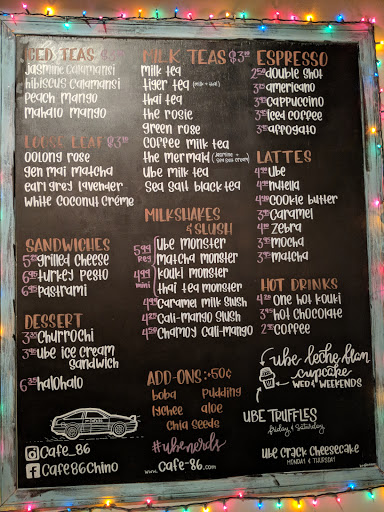 ICED TEAS $3.50
jasmine calamansi
hibiscus calamansi
peach mango
mahalo mango
LOOSE LEAF $3.50
oolong rose
gen mai matcha
earl grey lavender
white coconut créme
SANDWICHES
grilled cheese
turkey pesto
pastrami
DESSERT
churrochi
ube ice cream
sandwich
halohalo
Cafe_86
Cafe86Chino
MILK TEAS
milk tea
tiger tea (milk + thai)
thai tea
the rosie
green rose
coffee milk tea
the mermaid
ube milk tea
sea salt black tea
MILKSHAKES
& SLUSH
5.99 reg
4.99 mini
ube monster
matcha monster
kouki monster
thai tea monster
caramel milk slush
cali-mango slush
chamoy cali-mango
ADD-ONS: +50¢
boba pudding
lychee aloe
chia seeds
#ubenerds
www.cafe-86.com
ESPRESSO
double shot
americano
cappuccino
iced coffee
affogato
LATTES
ube
nutella
cookie butter
caramel
zebra
mocha
matcha
HOT DRINKS
one hot kouki
hot chocolate
coffee
ube leche flan
cupcake
WED & WEEKENDS
UBE TRUFFLES
friday & saturday
ube crack cheesecake
MONDAY & THURSDAY